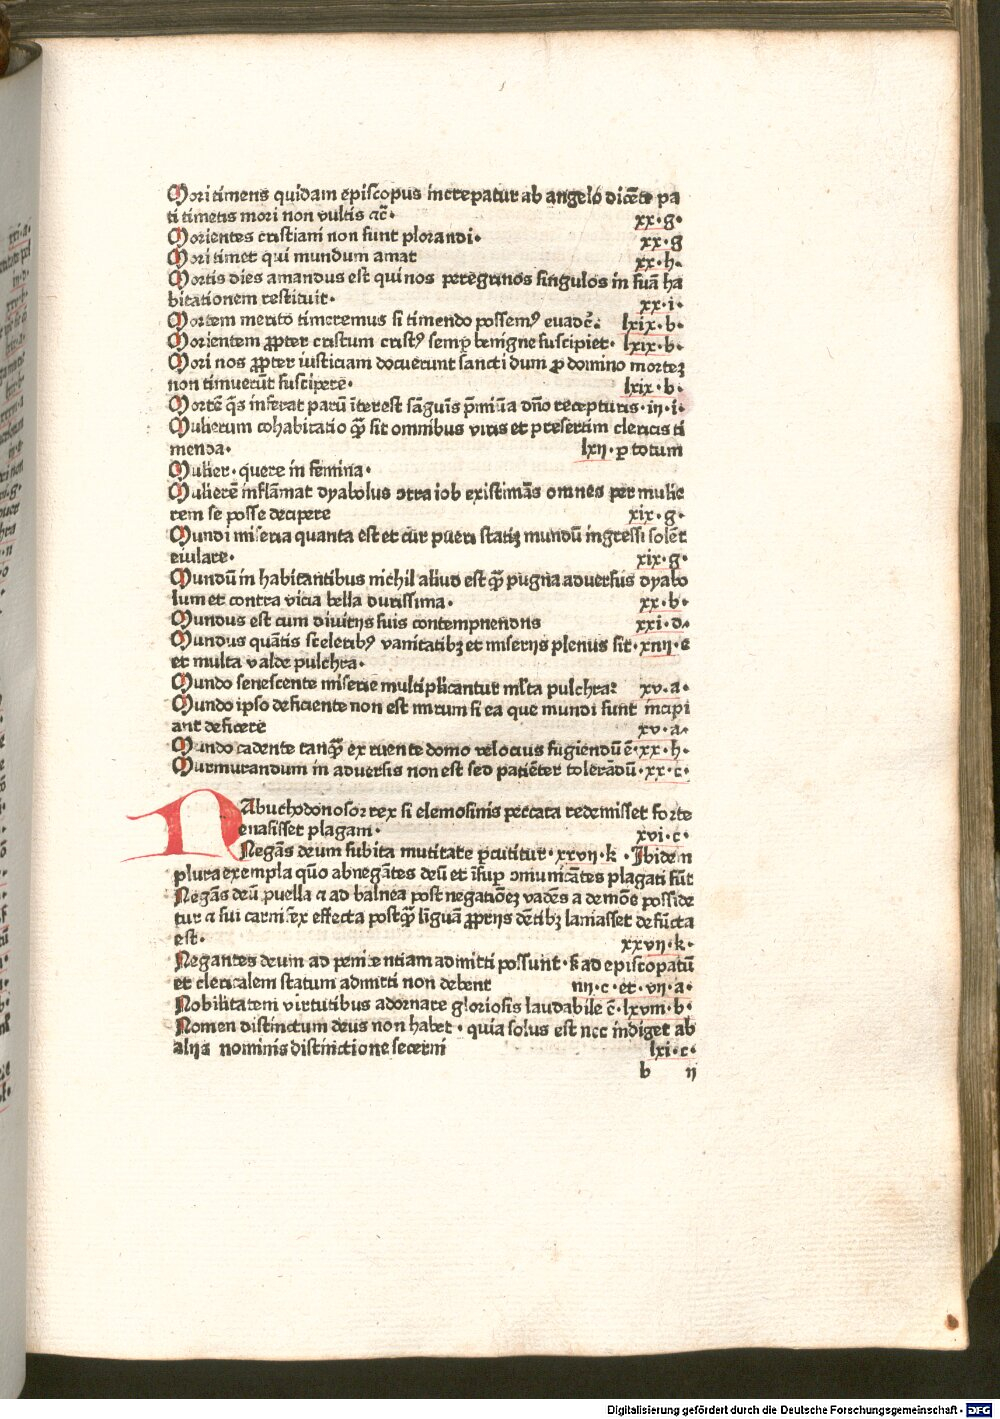 Mori timens quidam episcopus increpatur ab angelo dicēte pa
ti timetis mori non vultis ⁊c̄· xx·g·
Morientes cristiani non sunt plorandi· xx·g
Mori timet qui mundum amat xx·h·
Mortis dies amandus est qui nos peregrinos singulos in suā ha
bitationem restituit· xx·i·
Mortem merito timeremus si timendo possemꝰ evadē· lxix·b·
Morientem ꝓpter cristum cristꝰ semꝑ benigne suscipiet· lxix·b·
Mori nos ꝓpter iusticiam docuerunt sancti dum ꝓ domino mortez
non timuerūt suscipere· lxix·b·
Mortē q̄s inferat parū īterest sāguīs p̄miū a dn̄o recepturis·iij·i·
Mulierum cohabitatio qꝫ̄ sit omnibus viris et presertim clericis ti
menda· lxij·ꝑ totum
Mulier·quere in femina·
Mulierē inflāmat dyabolus ↄtra iob existimās omnes per mulie
rem se posse decipere xix·g·
Mundi miseria quanta est et cur pueri statiꝫ mundū ingressi solēt
eiulare· xix·g·
Mundū in habitantibus nichil aliud est qꝫ̄ pugna adversus dyabo
lum et contra vicia bella durissima· xx·b·
Mundus est cum divitijs suis contempnendus xxi·d·
Mundus quātis sceleribꝰ vanitatibꝫ et miserijs plenus sit·xiiij·e
et multa valde pulchra·
Mundo senescente miserie multiplicantur ml̄ta pulchra: xv·a·
Mundo ipso deficiente non est mirum si ea que mundi sunt incipi
ant deficere xv·a·
Mundo cadente tanqꝫ̄ ex ruente domo velocius fugiendū ē·xx·h·
Murmurandum in adversis non est sed patiēter tolerādū·xx·c·
Nabuchodonosor rex si elemosinis peccata redemisset forte
evasisset plagam· xvi·c·
Negās deum subita mutitate ꝑcutitur·xxvij·k·Ibidem
plura exempla quō abnegātes deū et īsuꝑ ↄmunicātes plagati sūt
Negās deū puella ⁊ ad balnea post negatiōeꝫ vadēs a demōe posside
tur ⁊ sui carnifex effecta postqꝫ̄ liguā ꝓprijs dētibꝫ laniasset defūcta
est· xxvij·k·
Negantes deum ad penitentiam admitti possunt·k̄ ad episcopatū
et clericalem statum admitti non debent iiij·c·et·vij·a·
Nobilitatem virtutibus adornare gloriosis laudabile ē·lxviii·b·
Nomen distinctum deus non habet·quia solus est nec indiget ab
alijs nominis distinctione secerni lxi·c·
b ij
Digitalisierung gefördert durch die Deutsche Forschungsgemeinschaft - DFG